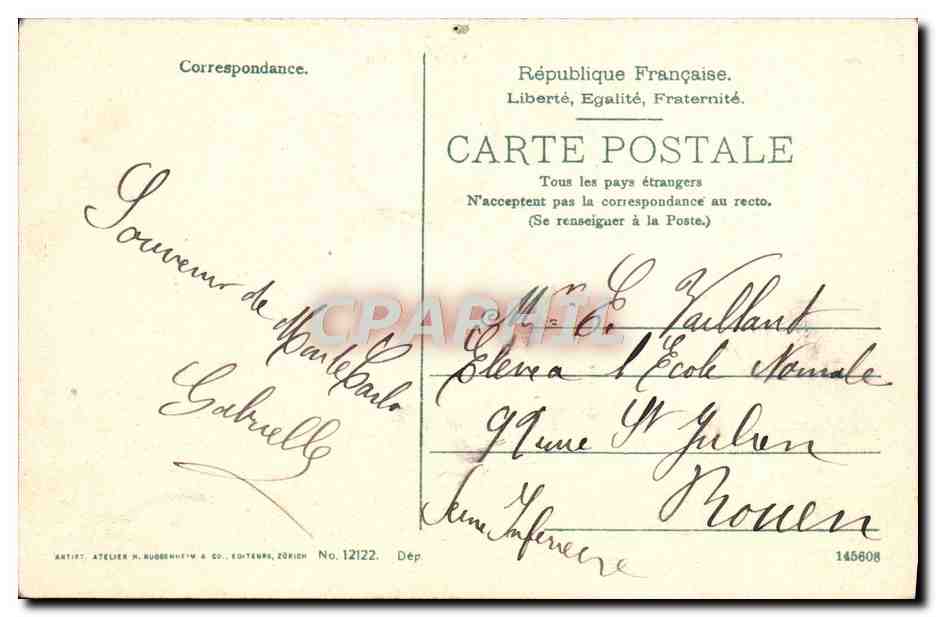 Correspondance.
Souvenir de
Monte Carlo
Gabrielle
République Française.
Liberté, Egalité, Fraternité.
CARTE POSTALE
Tous les pays étrangers
N'acceptent pas la correspondance au recto.
(Se renseigner à la Poste.)
CPARHIL
Mr E. Vaillant
Elève a l'Ecole Normale
9 rue St Julien
Rouen
Seine Inferieure
ARTIST. ATELIER H. GUGGENHEIM & CO., EDITEURS, ZÜRICH No. 12122. Dép.
145608